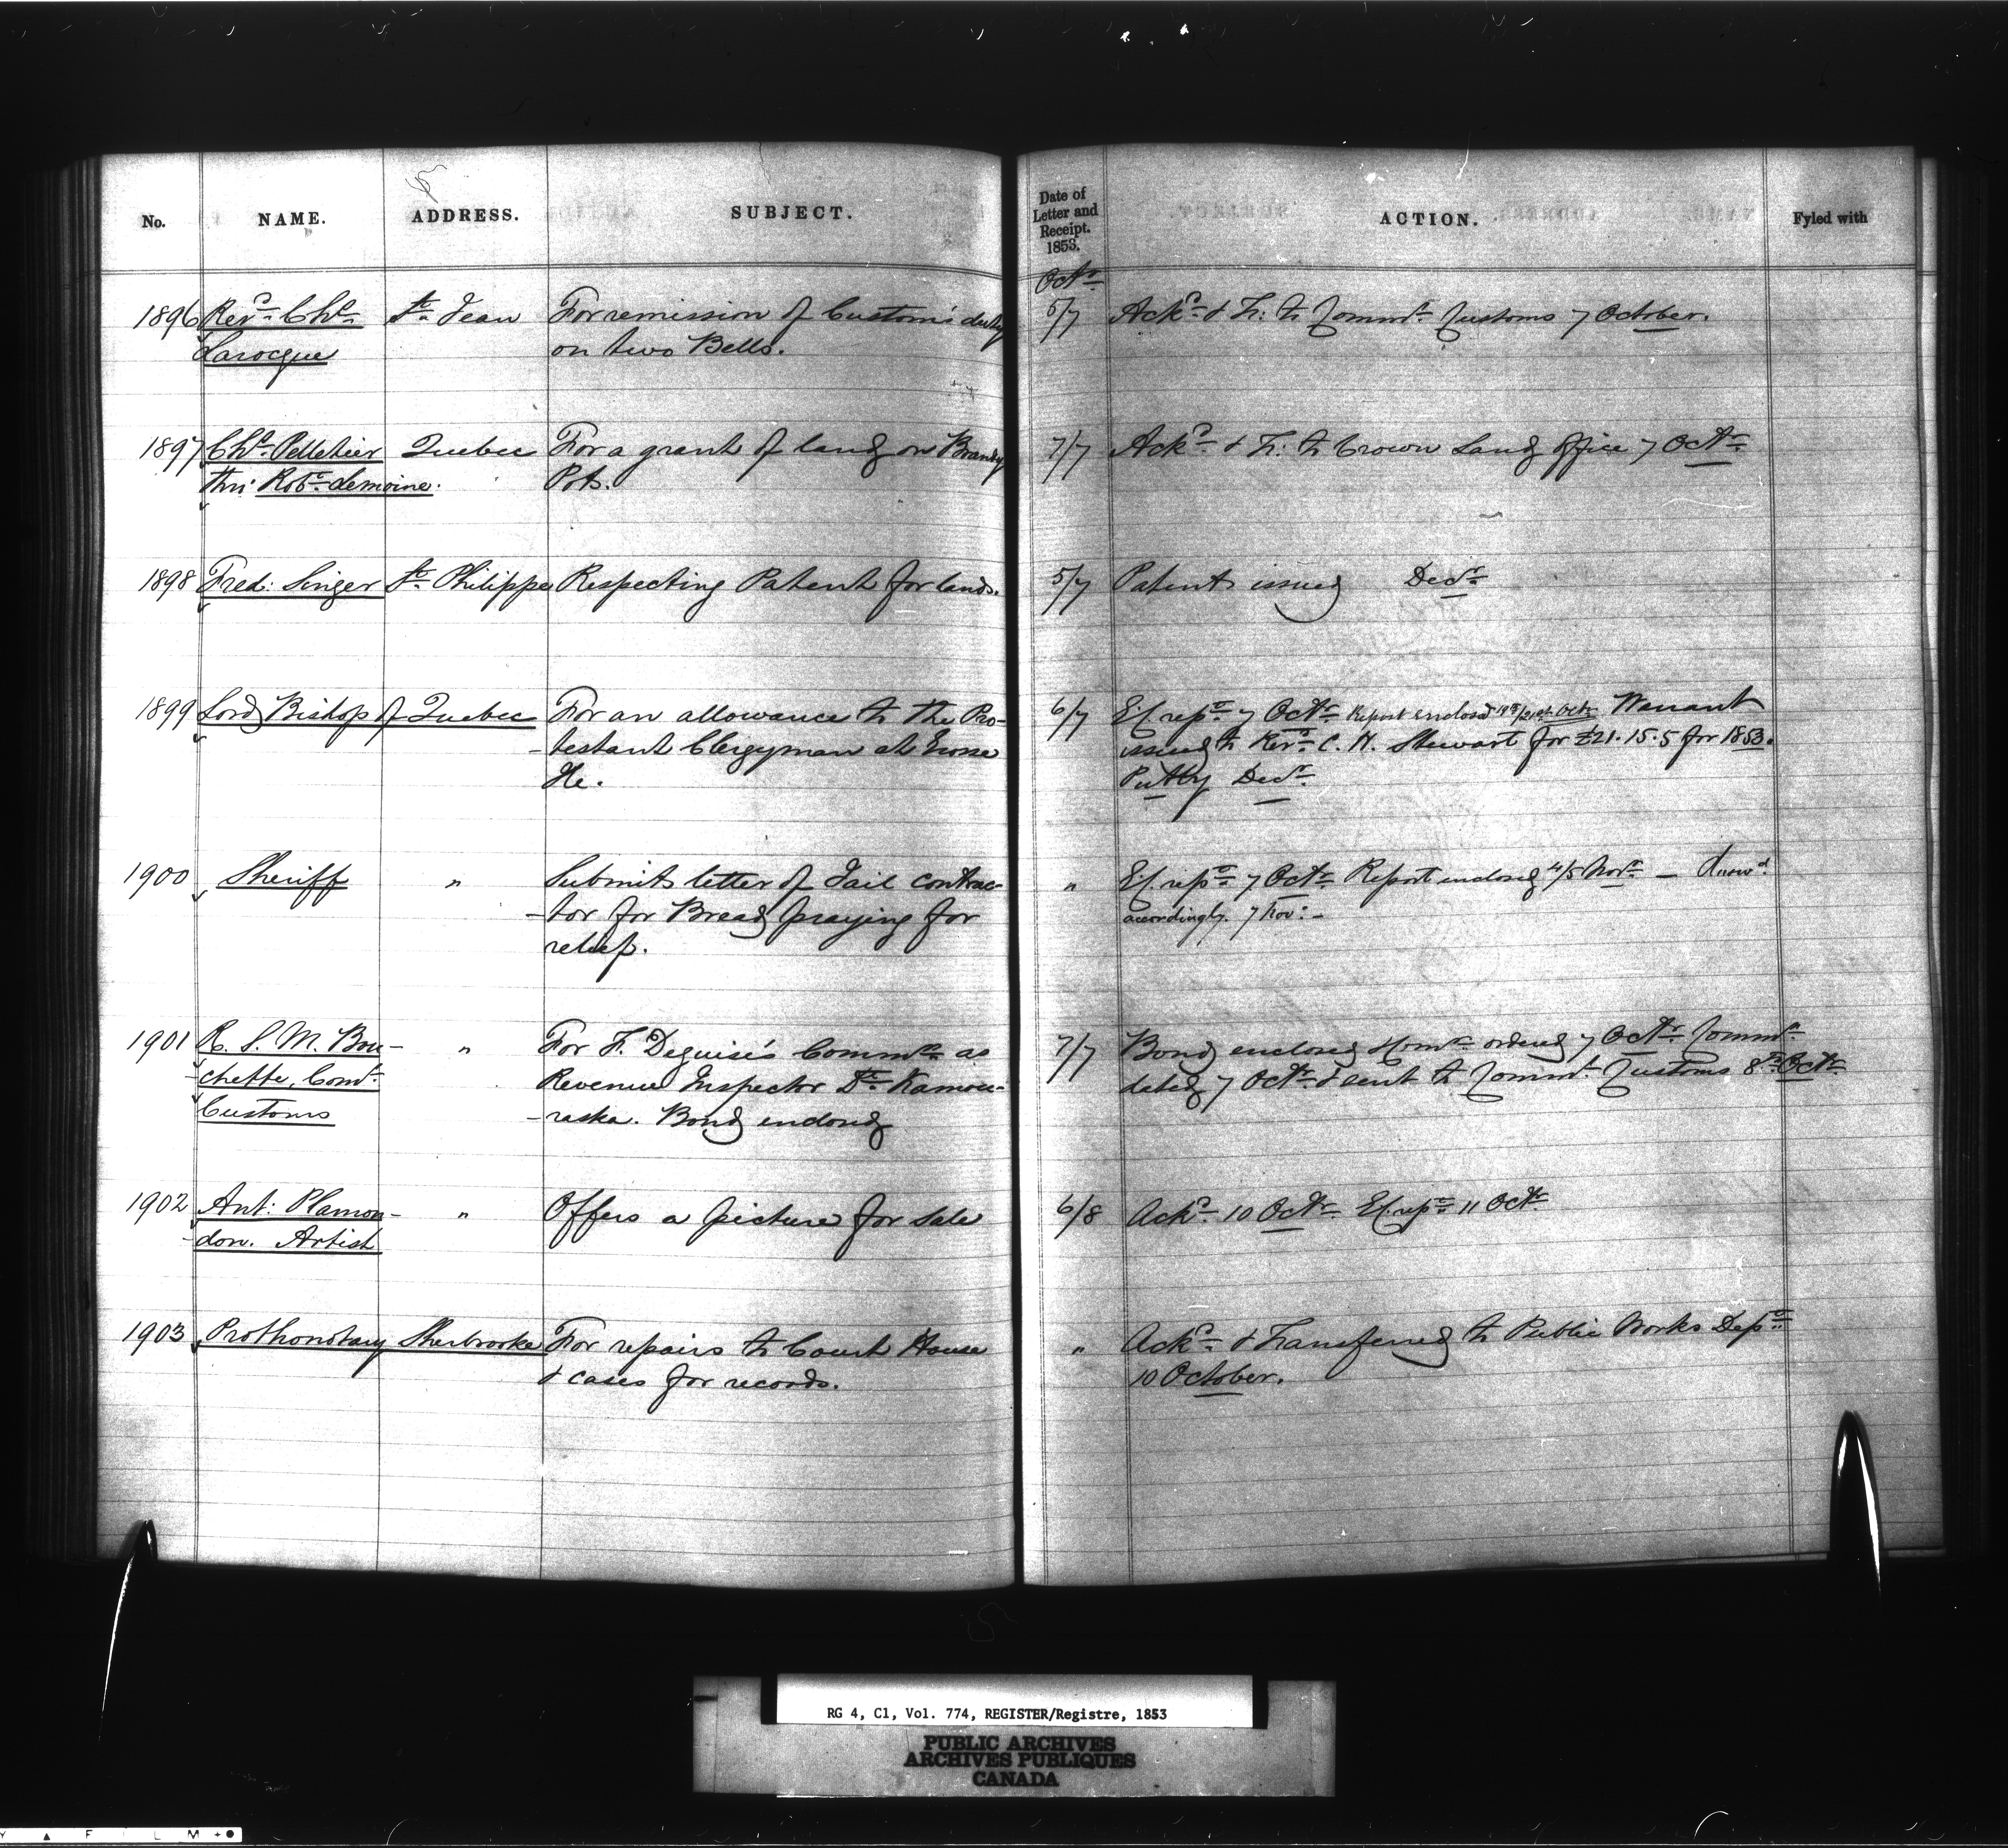 No. NAME. ADDRESS. SUBJECT. Date of Letter and Receipt. 1853. ACTION. Fyled with
Octr
1896 Revd Chs St Jean For remission of Custom's duty 5/7 Ackd & Tr: to Commr Customs 7 October.
Larocque on two Bells.
1897 Chs Pelletier Quebec For a grant of land on Brandy 7/7 Ackd & Tr: to Crown Land Office 7 Octr
thro' Robt Lemoine. Pots.
1898 Fred: Singer St Philippe Respecting Patent for lands. 5/7 Patent issued Decr
1899 Lord Bishop of Quebec For an allowance to the Pro- 6/7 Ef. repce 7 Octr Report enclosed 19th/21st Octr Warrant
-testant Clergyman at Grosse issued to Revd C. N. Stewart for £21.15.5 for 1853.
Ile. Decr
1900 Sheriff " Submits letter of Jail contrac- " Ef. repce 7 Octr Report enclosed 4/5 Novr —
-tor for Bread praying for accordingly. 7 Nov: –
relief.
1901 R. S. M. Bou- " For F. Deguise's Commn as 7/7 Bond enclosed Comn ordered 7 Octr Commn
-chette, Comr Revenue Inspector Dt Kamou- dated 7 Octr & sent to Commr Customs 8th Octr
Customs -raska. Bond enclosed
1902 Ant: Plamon- " Offers a picture for sale 6/8 Ackd 10 Octr Ef. repce 11 Octr
-don. Artist
1903 Prothonotary Sherbrooke For repairs to Court House " Ackd & Transferred to Public Works Dept
& cases for records. 10 October.
RG 4, C1, Vol. 774, REGISTER/Registre, 1853
PUBLIC ARCHIVES
ARCHIVES PUBLIQUES
CANADA